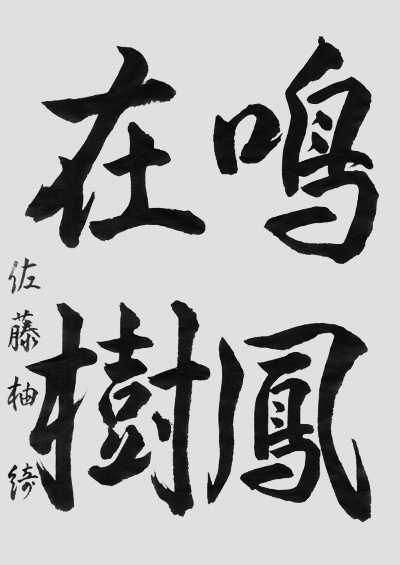 鳴鳳
在樹
佐藤柚綺